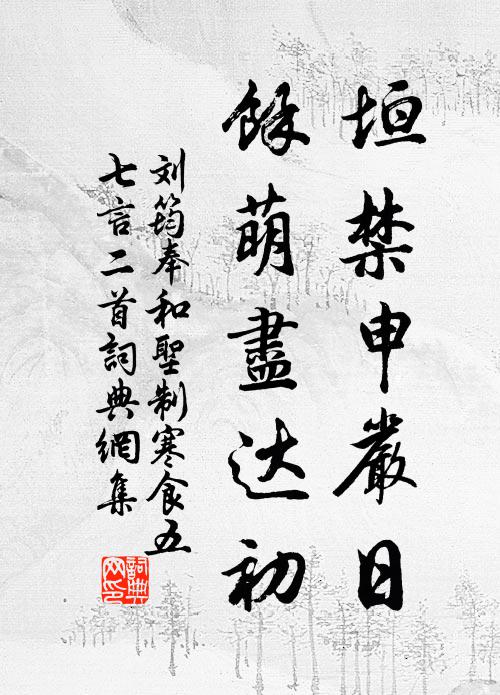 垣禁申嚴日
餘萌盡达初
刘筠奉和聖制寒食五
七言二首詞典網集
詞典网印